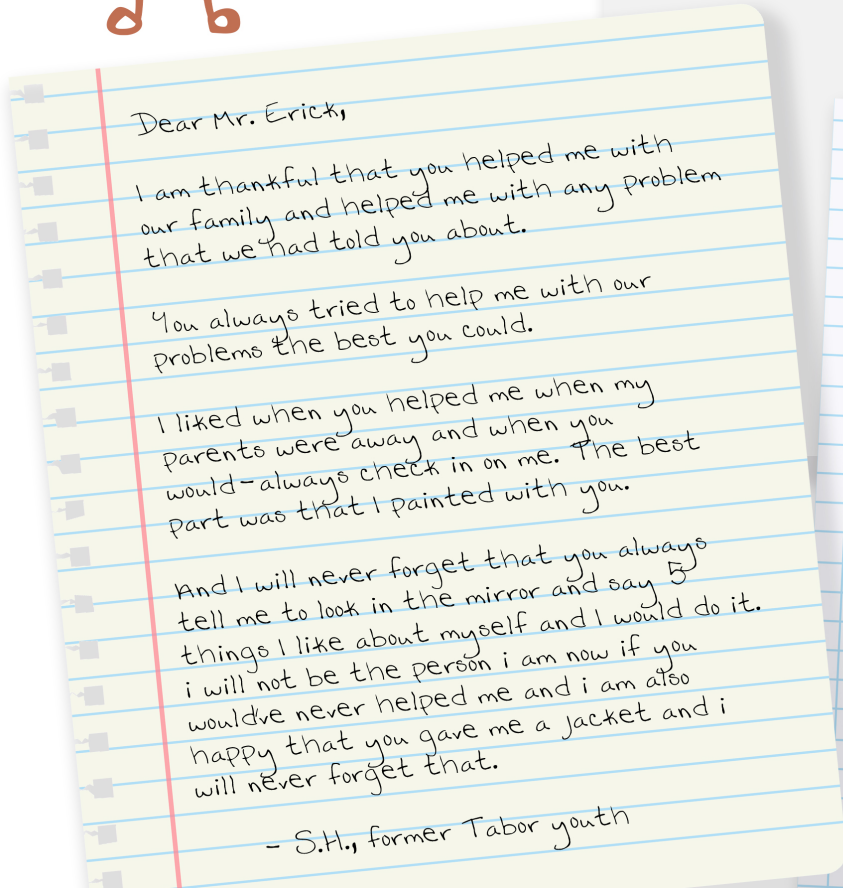 Dear Mr. Erick,
I am thankful that you helped me with
our family and helped me with any problem
that we had told you about.
You always tried to help me with our
problems the best you could.
I liked when you helped me when my
parents were away and when you
would-always check in on me. The best
part was that I painted with you.
And I will never forget that you always
tell me to look in the mirror and say 5
things I like about myself and I would do it.
i will not be the person i am now if you
would've never helped me and i am also
happy that you gave me a jacket and i
will never forget that.
- S.H., former Tabor youth